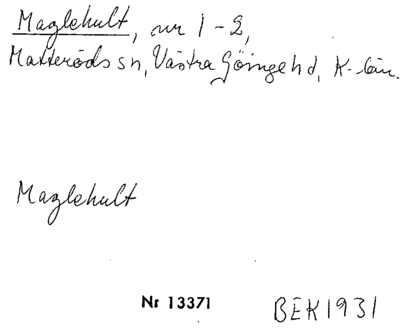 Maglehult, nr 1-2,
Matteröds sn, Västra Göinge hd, K-län.
Maglehult
Nr 13371 BEK 1931